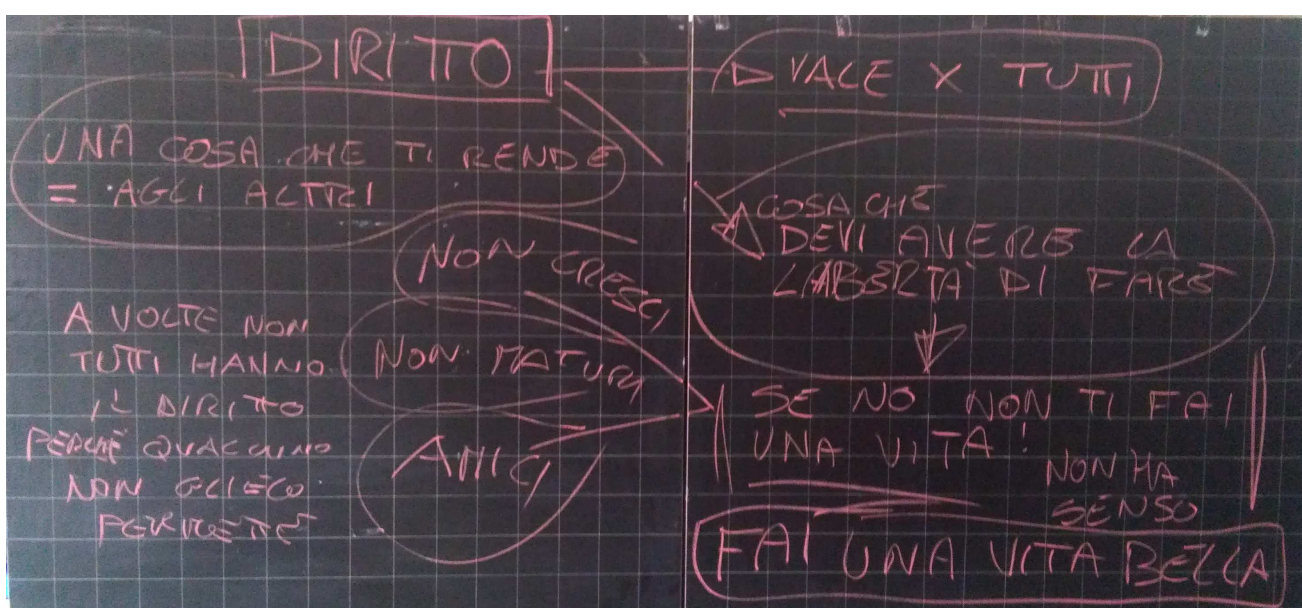 DIRITTO
VALE X TUTTI
UNA COSA CHE TI RENDE
= AGLI ALTRI
COSA CHE
DEVI AVERE LA
LIBERTÀ DI FARE
NON CRESCI
NON MATURI
AMICI
A VOLTE NON
TUTTI HANNO
IL DIRITTO
PERCHÉ QUALCUNO
NON GLIELO
PERMETTE
SE NO NON TI FAI
UNA VITA!
NON HA
SENSO
FAI UNA VITA BELLA